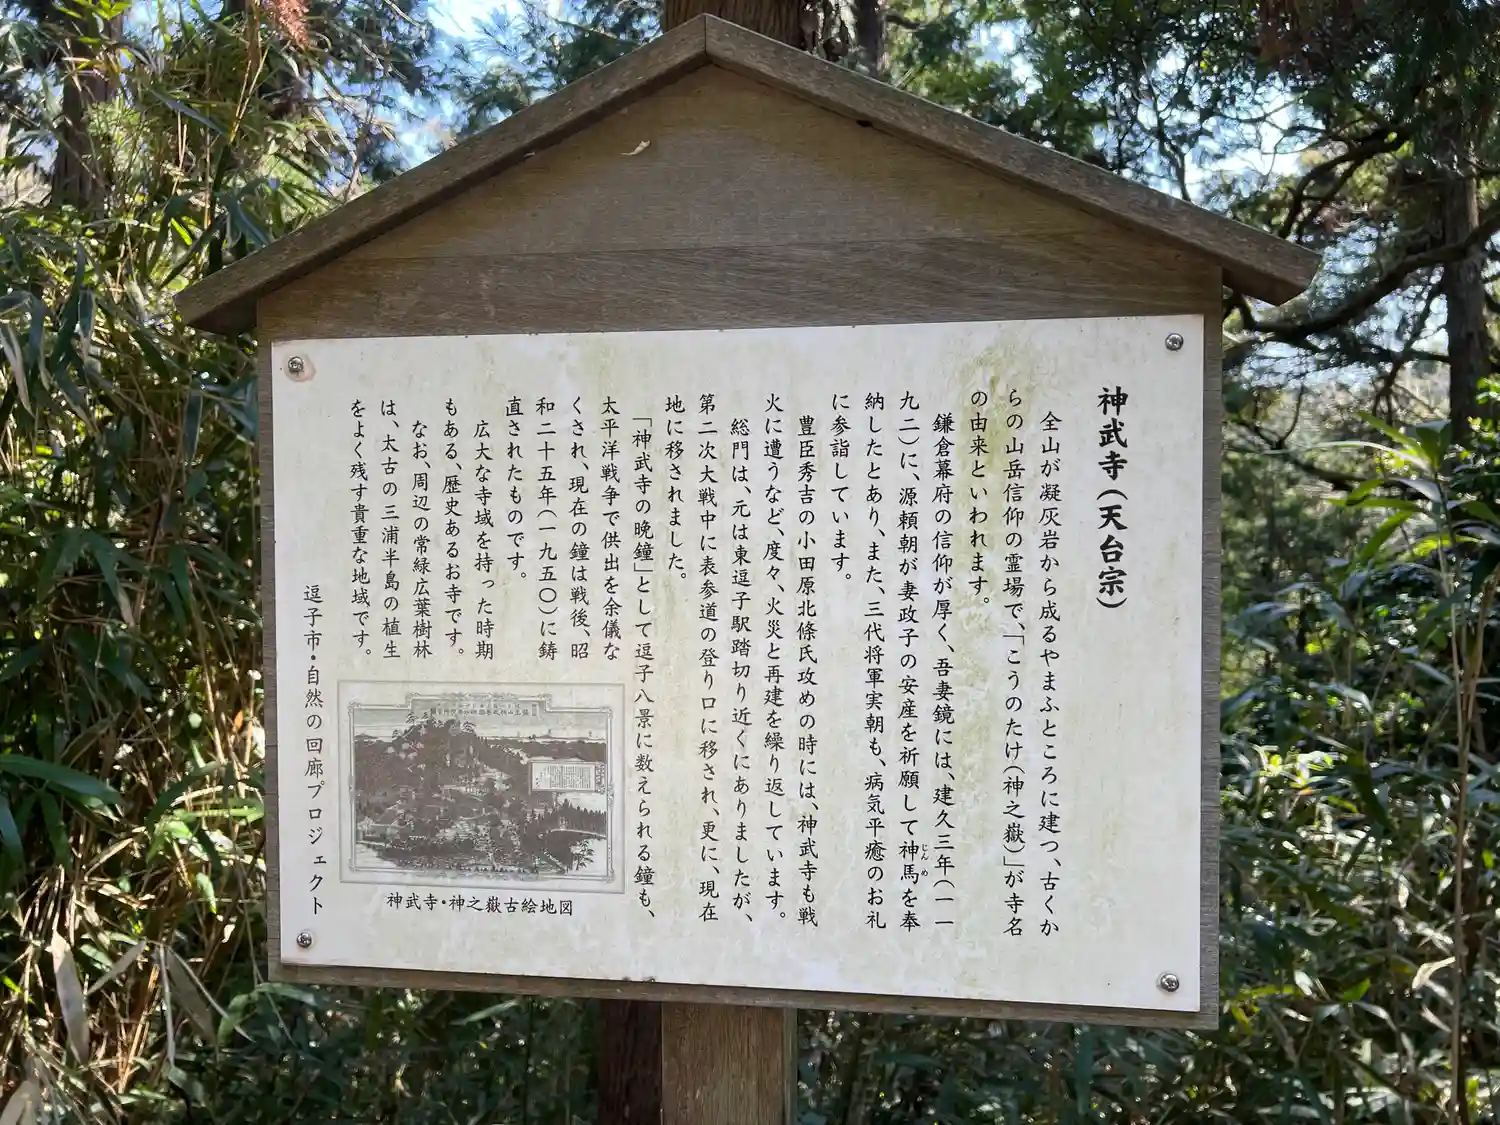 神武寺(天台宗)
全山が凝灰岩から成るやまふところに建つ、古くか
らの山岳信仰の霊場で、「こうのたけ(神之嶽)」が寺名
の由来といわれます。
鎌倉幕府の信仰が厚く、吾妻鏡には、建久三年(一一
九二)に、源頼朝が妻政子の安産を祈願して神馬を奉
じんめ
納したとあり、また、三代将軍実朝も、病気平癒のお礼
に参詣しています。
豊臣秀吉の小田原北條氏攻めの時には、神武寺も戦
火に遭うなど、度々、火災と再建を繰り返しています。
総門は、元は東逗子駅踏切り近くにありましたが、
第二次大戦中に表参道の登り口に移され、更に、現在
地に移されました。
「神武寺の晩鐘」として逗子八景に数えられる鐘も、
太平洋戦争で供出を余儀な
くされ、現在の鐘は戦後、昭
和二十五年(一九五〇)に鋳
直されたものです。
広大な寺域を持った時期
もある、歴史あるお寺です。
なお、周辺の常緑広葉樹林
は、太古の三浦半島の植生
をよく残す貴重な地域です。
逗子市・自然の回廊プロジェクト
神武寺・神之嶽古絵地図